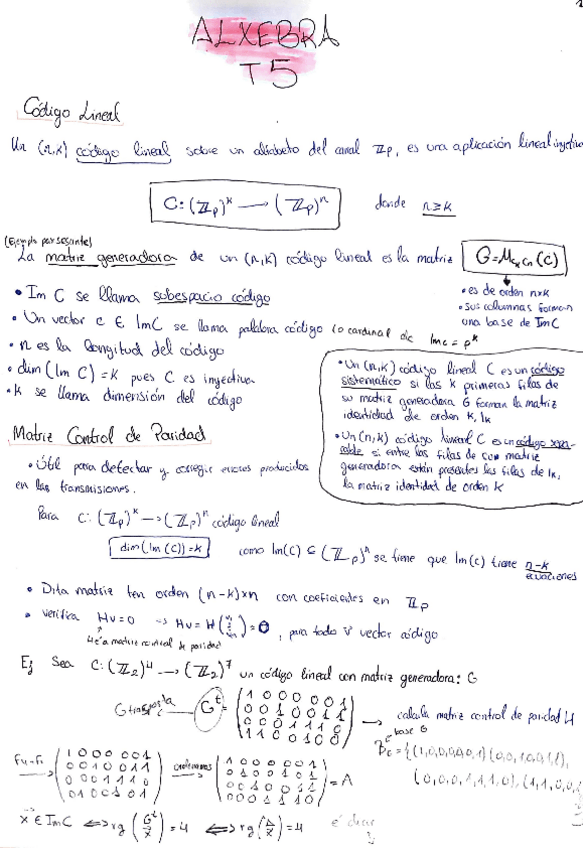 1
ALXEBRA
T5
Código Lineal
Un (n,k) código lineal sobre un alfabeto del canal ℤp, es una aplicación lineal inyectiva
C: (ℤp)^k → (ℤp)^n donde n≥k
(Ejemplo par sesante)
La matriz generadora de un (n,k) código lineal es la matriz G=M_{Ck,Cn}(C)
• es de orden n×k
• sus columnas forman
una base de Im C
• Im C se llama subespacio código
• Un vector c ∈ Im C se llama palabra código (o cardinal de Im C = p^k
• n es la longitud del código
• dim (Im C) = k pues C es inyectiva
• k se llama dimensión del código
• Un (n,k) código lineal C es un código
sistemático si las k primeras filas de
su matriz generadora G forman la matriz
identidad de orden k, Ik
• Un (n,k) código lineal C es un código sepa-
rable si entre las filas de su matriz
generadora están presentes las filas de Ik,
la matriz identidad de orden k
Matriz Control de Paridad
• Útil para detectar y corregir errores producidos
en las transmisiones.
Para C: (ℤp)^k → (ℤp)^n código lineal
dim (Im (C)) = k como Im(C) ⊆ (ℤp)^n se tiene que Im(C) tiene n-k
ecuaciones
• Dita matriz ten orden (n-k)×n con coeficientes en ℤp
• verifica Hv=0 → Hv = H( ) = 0, para todo v vector código
H é a matriz control de paridad
Ej Sea C: (ℤ2)^4 → (ℤ2)^7 un código lineal con matriz generadora: G
G trasposta G^t = (1 0 0 0 0 0 1
0 0 1 0 0 1 1
0 0 0 1 1 1 0
1 1 0 0 1 0 0) → calcula matriz control de paridad H
base G
B_C = {(1,0,0,0,0,0,1) (0,0,1,0,0,1,1),
(0,0,0,1,1,1,0), (1,1,0,0,
(1 0 0 0 0 0 1
0 0 1 0 0 1 1
0 0 0 1 1 1 0
0 1 0 0 1 0 1) ordenamos (1 0 0 0 0 0 1
0 1 0 0 1 0 1
0 0 1 0 0 1 1
0 0 0 1 1 1 0) = A
x ∈ Im C ⟺ rg (G^t / x) = 4 ⟺ rg (A / x) = 4 é dicir